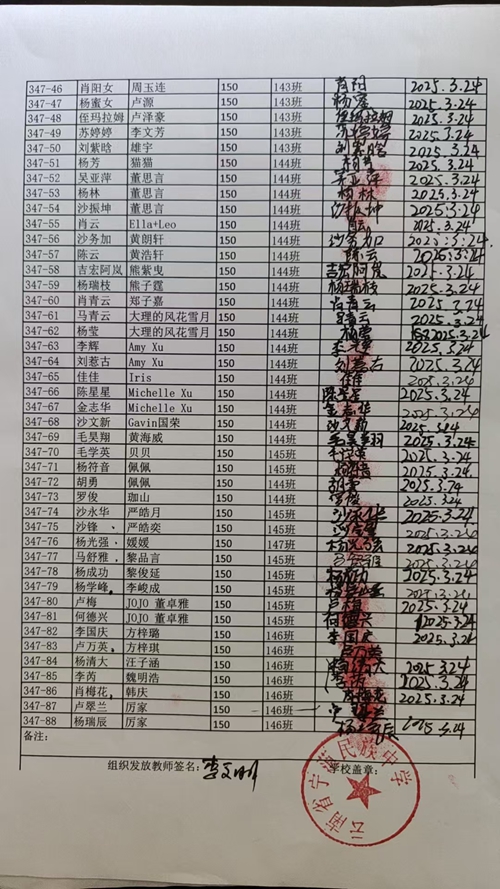 347-46 肖阳女 周玉连 150 143班 肖阳 2025.3.24
347-47 杨蜜女 卢源 150 143班 杨蜜 2025.3.24
347-48 侄玛拉姆 卢泽豪 150 143班 侄玛拉姆 2025.3.24
347-49 苏婷婷 李文芳 150 143班 苏婷婷 2025.3.24
347-50 刘紫晗 雄宇 150 143班 刘紫晗 2025.3.24
347-51 杨芳 猫猫 150 144班 杨芳 2025.3.24
347-52 吴亚萍 董思言 150 144班 吴亚萍 2025.3.24
347-53 杨林 董思言 150 144班 杨林 2025.3.24
347-54 沙振坤 董思言 150 144班 沙振坤 2025.3.24
347-55 肖云 Ella+Leo 150 144班 肖云 2025.3.24
347-56 沙务加 黄朗轩 150 144班 沙务加 2025.3.24
347-57 陈云 黄浩轩 150 144班 陈云 2025.3.24
347-58 吉宏阿岚 熊紫叟 150 144班 吉宏阿岚 2025.3.24
347-59 杨瑞枝 熊子霆 150 144班 杨瑞枝 2025.3.24
347-60 肖青云 郑子嘉 150 144班 肖青云 2025.3.24
347-61 马青云 大理的风花雪月 150 144班 马青云 2025.3.24
347-62 杨莹 大理的风花雪月 150 144班 杨莹 2025.3.24
347-63 李辉 Amy Xu 150 144班 2025.3.24
347-64 刘惹古 Amy Xu 150 144班 刘惹古 2025.3.24
347-65 佳佳 Iris 150 144班 佳佳 2025.3.24
347-66 陈星星 Michelle Xu 150 144班 陈星星 2025.3.24
347-67 金志华 Michelle Xu 150 144班 金志华 2025.3.24
347-68 沙文新 Gavin国荣 150 144班 沙文新 2025.3.24
347-69 毛昊翔 黄海威 150 144班 毛昊翔 2025.3.24
347-70 毛学英 贝贝 150 145班 毛学英 2025.3.24
347-71 杨符音 佩佩 150 145班 杨符音 2025.3.24
347-72 胡勇 佩佩 150 144班 胡勇 2025.3.24
347-73 罗俊 珈山 150 144班 罗俊 2025.3.24
347-74 沙永华 严皓月 150 145班 沙永华 2025.3.24
347-75 沙锋 严皓奕 150 145班 2025.3.24
347-76 杨光强 媛媛 150 147班 杨光强 2025.3.24
347-77 马舒雅 黎品言 150 145班 马舒雅 2025.3.24
347-78 杨成功 黎俊延 150 145班 杨成功 2025.3.24
347-79 杨学峰 李峻成 150 145班 2025.3.24
347-80 卢梅 JOJO 董卓雅 150 145班 卢梅 2025.3.24
347-81 何德兴 JOJO 董卓雅 150 145班 何德兴 2025.3.24
347-82 李国庆 方梓璐 150 146班 李国庆 2025.3.24
347-83 卢万英 方梓琪 150 146班 卢万英
347-84 杨清大 汪子涵 150 146班 杨清大 2025.3.24
347-85 李芮 魏明浩 150 146班 2025.3.24
347-86 肖梅花 韩庆 150 146班 肖梅花 2025.3.24
347-87 卢翠兰 厉家 150 146班 卢翠兰
347-88 杨瑞辰 厉家 150 146班 杨瑞辰 2025.3.24
备注:
组织发放教师签名: 学校盖章:
云南省宁蒗民族中学